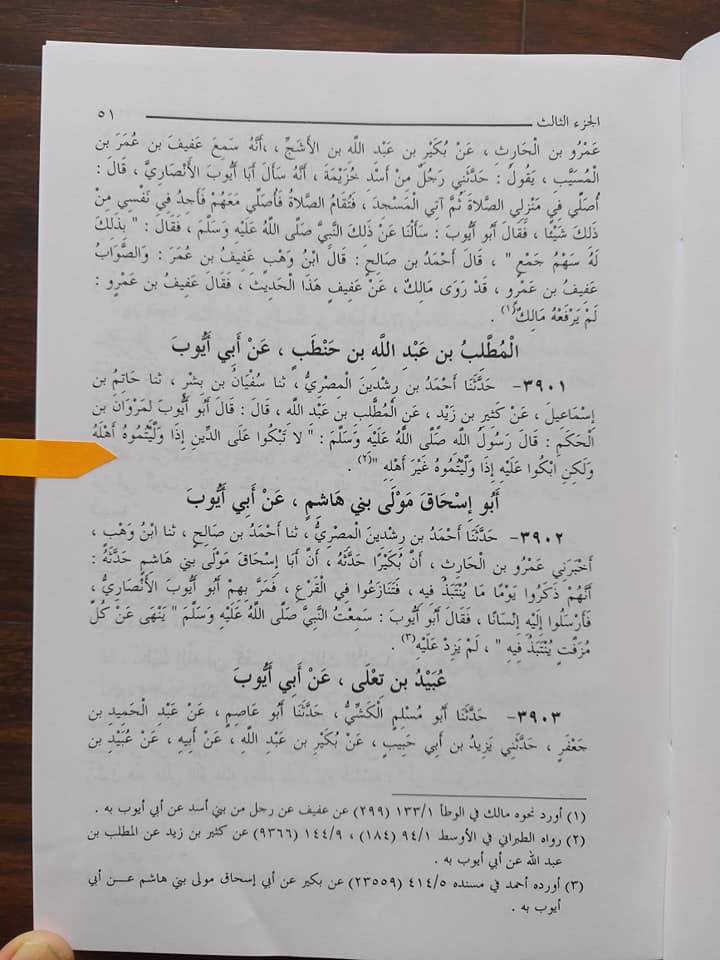 الجزء الثالث ٥١
عَمْرُو بن الْحَارِثِ ، عَنْ بُكَيْرِ بن عَبْدِ اللَّهِ بن الأَشَجِّ ، ،أَنَّهُ سَمِعَ عَفِيفَ بن عُمَرَ بن
الْمُسَيَّبِ ، يَقُولُ : حَدَّثَنِي رَجُلٌ مِنْ أَسَدِ خُزَيْمَةَ ، أَنَّهُ سَأَلَ أَبَا أَيُّوبَ الأَنْصَارِيَّ ، قَالَ :
أُصَلِّي فِي مَنْزِلِي الصَّلاةَ ثُمَّ آتِي الْمَسْجِدَ ، فَتُقَامُ الصَّلاةُ فَأُصَلِّي مَعَهُمْ فَأَجِدُ فِي نَفْسِي مِنْ
ذَلِكَ شَيْئًا ، فَقَالَ أَبُو أَيُّوبَ : سَأَلْنَا عَنْ ذَلِكَ النَّبِيَّ صَلَّى اللَّهُ عَلَيْهِ وَسَلَّمَ ، فَقَالَ : " بِذَلِكَ
لَهُ سَهْمُ جَمْعٍ " ، قَالَ أَحْمَدُ بن صَالِحٍ : قَالَ ابْنُ وَهْبٍ عَفِيفُ بن عُمَرَ : وَالصَّوَابُ
عَفِيفُ بن عَمْرٍو ، قَدْ رَوَى مَالِكٌ ، عَنْ عَفِيفٍ هَذَا الْحَدِيثَ ، فَقَالَ عَفِيفُ بن عَمْرٍو :
لَمْ يَرْفَعْهُ مَالِكٌ(١) .
الْمُطَّلِبُ بن عَبْدِ اللَّهِ بن حَنْطَبٍ ، عَنْ أَبِي أَيُّوبَ
٣٩٠١- حَدَّثَنَا أَحْمَدُ بن رِشْدِينَ الْمِصْرِيُّ ، ثنا سُفْيَانُ بن بِشْرٍ ، ثنا حَاتِمُ بن
إِسْمَاعِيلَ ، عَنْ كَثِيرِ بن زَيْدٍ ، عَنِ الْمُطَّلِبِ بن عَبْدِ اللَّهِ ، قَالَ : قَالَ أَبُو أَيُّوبَ لِمَرْوَانَ بن
الْحَكَمِ : قَالَ رَسُولُ اللَّهِ صَلَّى اللَّهُ عَلَيْهِ وَسَلَّمَ : " لا تَبْكُوا عَلَى الدِّينِ إِذَا وَلَّيْتُمُوهُ أَهْلَهُ
وَلَكِنِ ابْكُوا عَلَيْهِ إِذَا وَلَّيْتُمُوهُ غَيْرَ أَهْلِهِ "(٢) .
أَبُو إِسْحَاقَ مَوْلَى بني هَاشِمٍ ، عَنْ أَبِي أَيُّوبَ
٣٩٠٢- حَدَّثَنَا أَحْمَدُ بن رِشْدِينَ الْمِصْرِيُّ ، ثنا أَحْمَدُ بن صَالِحٍ ، ثنا ابْنُ وَهْبٍ ،
أَخْبَرَنِي عَمْرُو بن الْحَارِثِ ، أَنَّ بُكَيْرًا حَدَّثَهُ ، أَنَّ أَبَا إِسْحَاقَ مَوْلَى بني هَاشِمٍ حَدَّثَهُ :
أَنَّهُمْ ذَكَرُوا يَوْمًا مَا يُنْتَبَذُ فِيهِ ، فَتَنَازَعُوا فِي الْقَرْعِ ، فَمَرَّ بِهِمْ أَبُو أَيُّوبَ الأَنْصَارِيُّ ،
فَأَرْسَلُوا إِلَيْهِ إِنْسَانًا ، فَقَالَ أَبُو أَيُّوبَ : سَمِعْتُ النَّبِيَّ صَلَّى اللَّهُ عَلَيْهِ وَسَلَّمَ " يَنْهَى عَنْ كُلِّ
مُزَفَّتٍ يُنْتَبَذُ فِيهِ " ، لَمْ يَزِدْ عَلَيْهِ(٣) .
عُبَيْدُ بن تِعْلَى ، عَنْ أَبِي أَيُّوبَ
٣٩٠٣- حَدَّثَنَا أَبُو مُسْلِمٍ الْكَشِّيُّ ، حَدَّثَنَا أَبُو عَاصِمٍ ، عَنْ عَبْدِ الْحَمِيدِ بن
جَعْفَرٍ ، حَدَّثَنِي يَزِيدُ بن أَبِي حَبِيبٍ ، عَنْ بُكَيْرِ بن عَبْدِ اللَّهِ ، عَنْ أَبِيهِ ، عَنْ عُبَيْدِ بن
(١) أورد نحوه مالك في الوطأ ١٣٣/١ (٢٩٩) عن عفيف عن رحل من بني أسد عن أبي أيوب به .
(٢) رواه الطبراني في الأوسط ٩٤/١ (١٨٤) ، ١٤٤/٩ (٩٣٦٦) عن كثير بن زيد عن المطلب بن
عبد الله عن أبي أيوب به .
(٣) أورده أحمد في مسنده ٤١٤/٥ (٢٣٥٥٩) عن بكير عن أبي إسحاق مولى بني هاشم عـــن أبي
أيوب به .